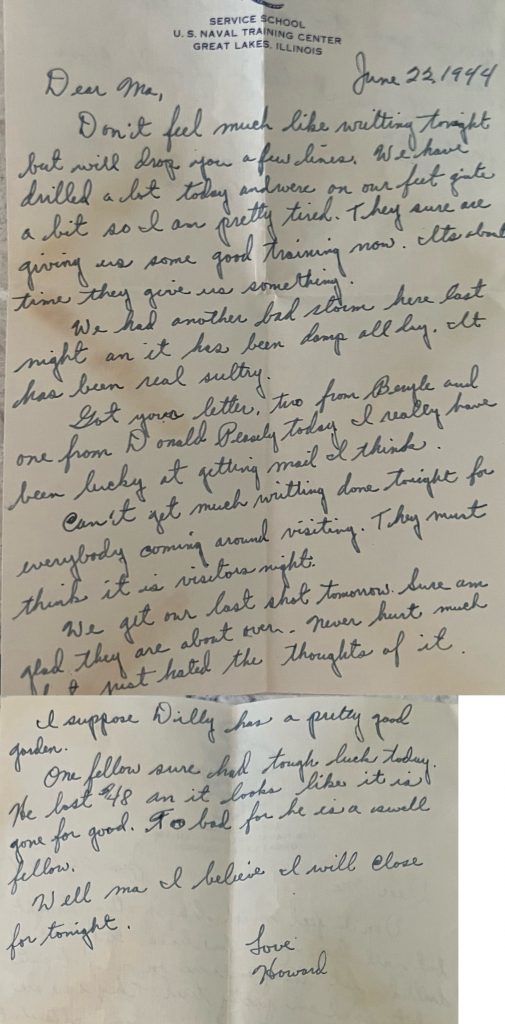 SERVICE SCHOOL
U. S. NAVAL TRAINING CENTER
GREAT LAKES, ILLINOIS
June 22, 1944
Dear Ma,
Don't feel much like writting tonight
but will drop you a few lines. We have
drilled a lot today and were on our feet quite
a bit so I am pretty tired. They sure are
giving us some good training now. Its about
time they give us something.
We had another bad storm here last
night an it has been damp all day. It
has been real sultry.
Got your letter, two from Beryle and
one from Donald Pearly today I really have
been lucky at getting mail I think.
Can't get much writting done tonight for
everybody coming around visiting. They must
think it is visitors night.
We get our last shot tomorrow. Sure am
glad they are about over. Never hurt much
but just hated the thoughts of it.
I suppose Dilly has a pretty good
garden.
One fellow sure had tough luck today.
He lost $48 an it looks like it is
gone for good. To bad for he is a swell
fellow.
Well ma I believe I will close
for tonight.
Love
Howard